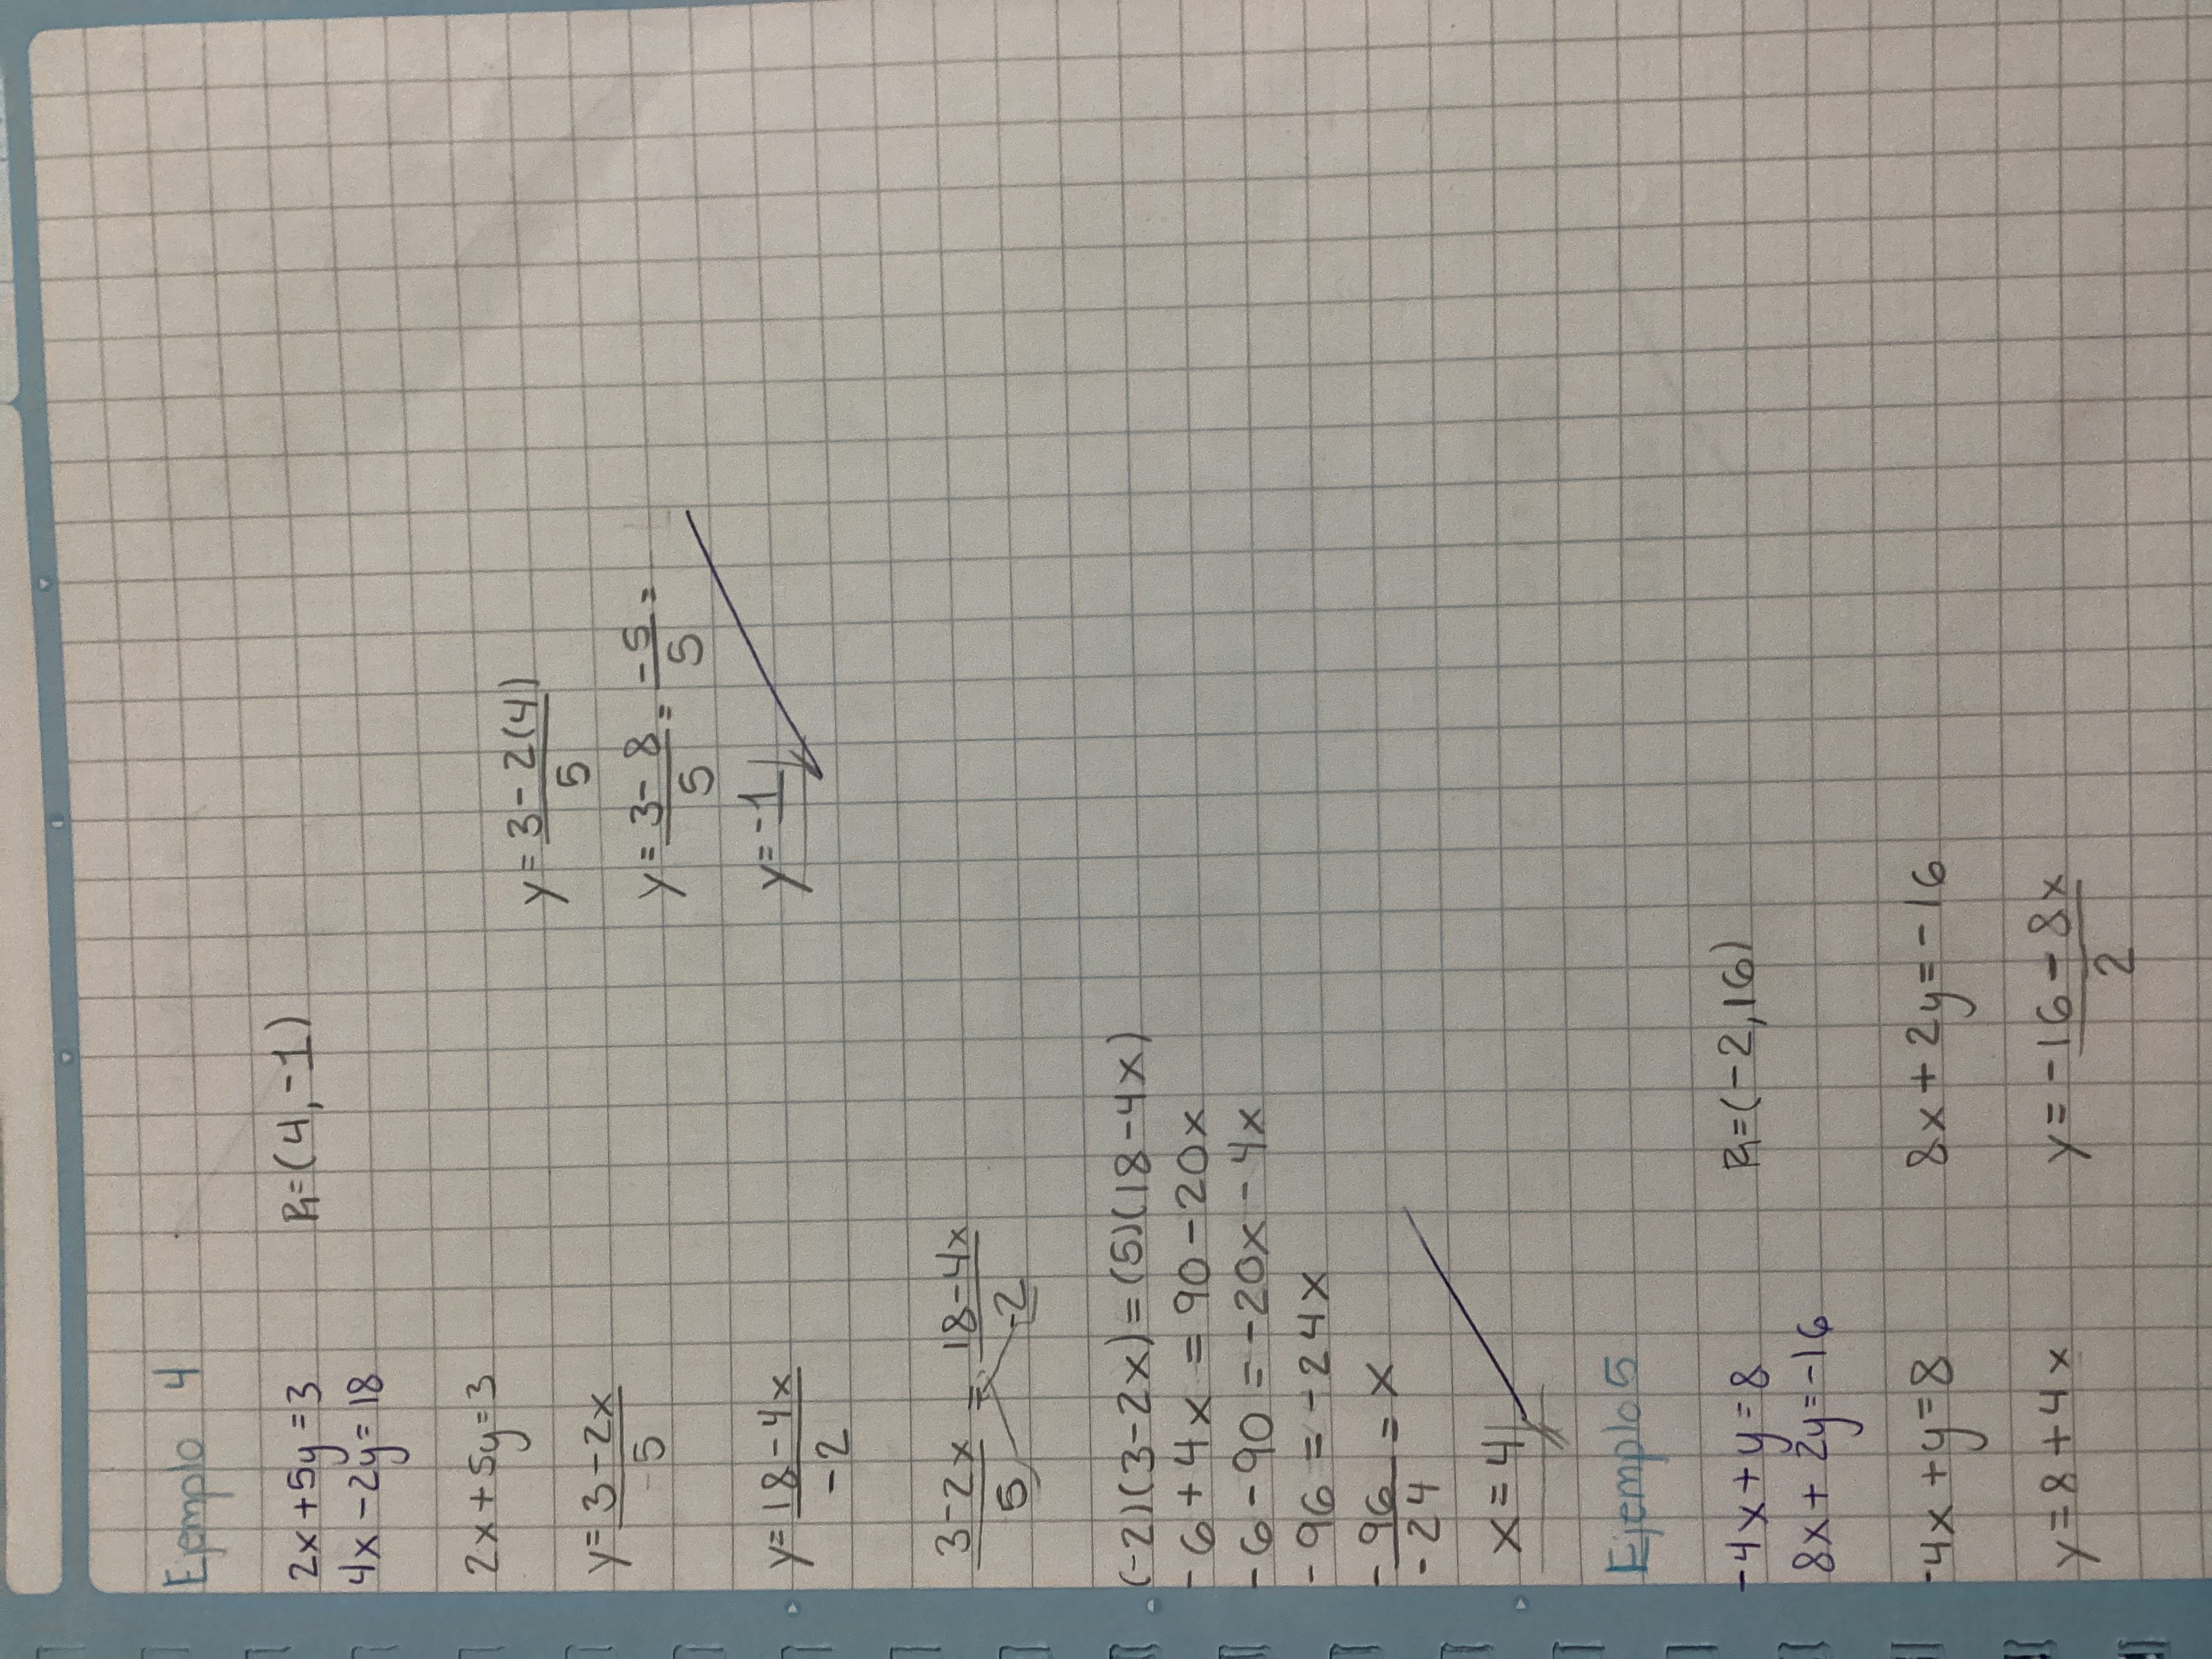 Ejemplo 4
2x + 5y = 3
4x - 2y = 18
P1 = (4, -1)
2x + 5y = 3
y = 3 - 2x / 5
y = 18 - 4x / -2
3 - 2x / 5 = 18 - 4x / -2
(-2)(3 - 2x) = (5)(18 - 4x)
- 6 + 4x = 90 - 20x
- 6 - 90 = - 20x - 4x
- 96 = - 24x
- 96 / - 24 = x
x = 4
y = 3 - 2(4) / 5
y = 3 - 8 / 5 = - 5 / 5 =
y = -1
Ejemplo 5
-4x + y = 8
8x + 2y = -16
P1 = (-2, 16)
-4x + y = 8
y = 8 + 4x
8x + 2y = - 16
y = - 16 - 8x / 2